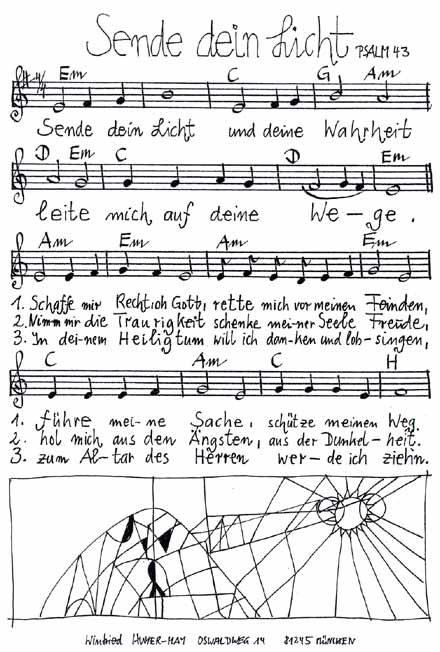 Sende dein Licht PSALM 43
Em C G Am
Sende dein Licht und deine Wahrheit
D Em C D Em
leite mich auf deine We-ge.
Am Em Am Em
1. Schaffe mir Recht, oh Gott, rette mich vor meinen Feinden,
2. Nimm mir die Traurigkeit schenke mei-ner Seele Freude,
3. In dei-nem Heiligtum will ich dan-ken und lob-singen,
C Am C H
1. führe mei-ne Sache, schütze meinen Weg.
2. hol mich aus den Ängsten, aus der Dunkel-heit.
3. zum Al-tar des Herren wer-de ich ziehn.
Winfried OSWALDWEG 14 81245 MÜNCHEN